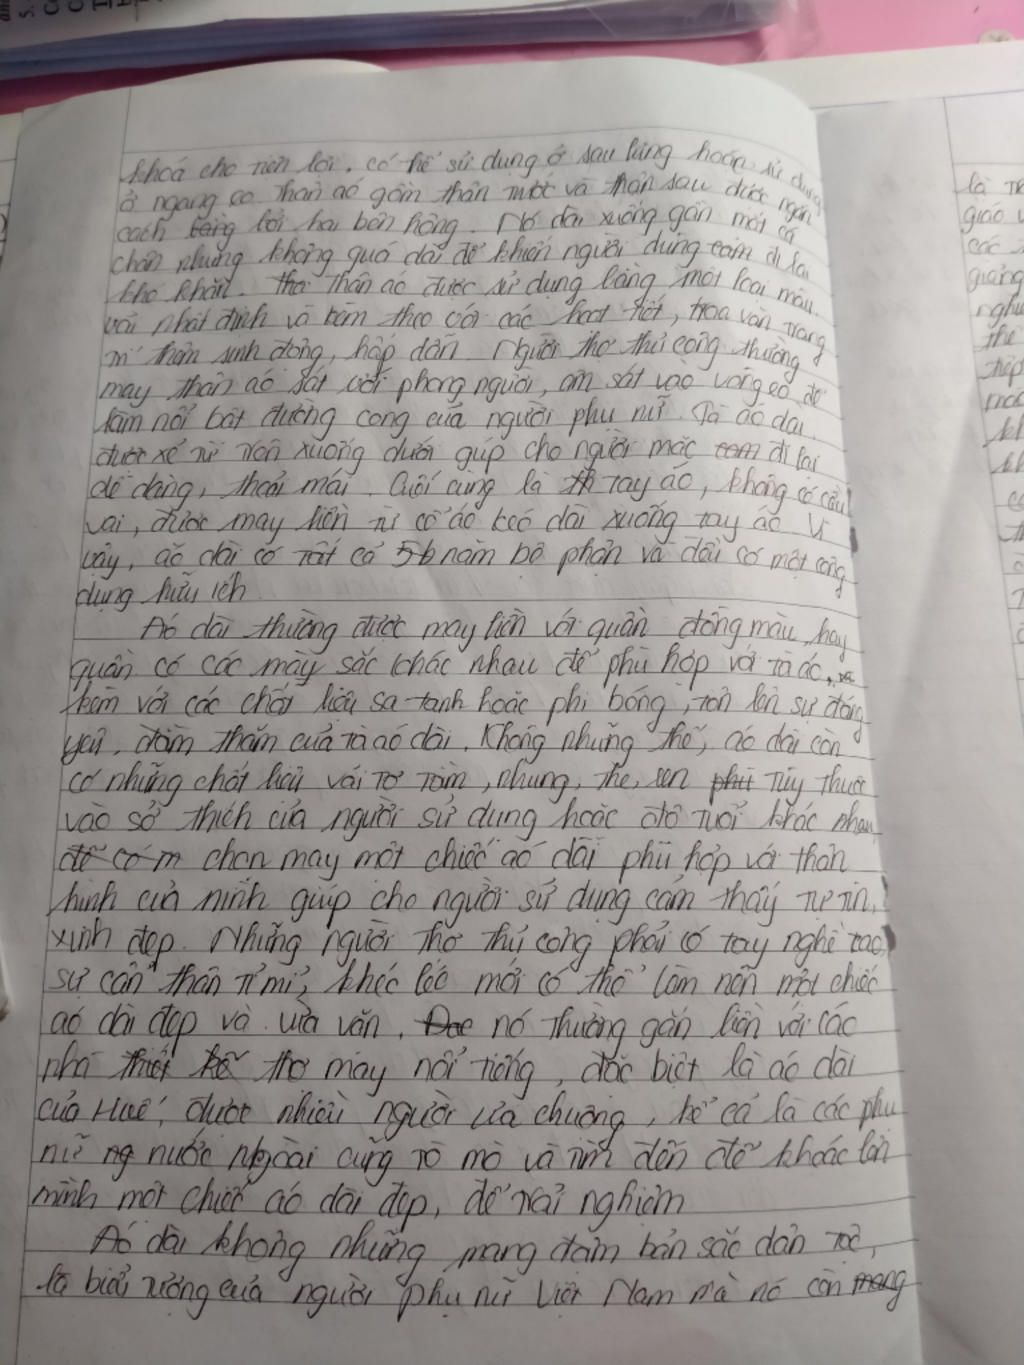 khoá cho tiện lợi, có thể sử dụng ở sau lưng hoặc sử dụng
ở ngang eo thân áo gồm thân trước và thân sau được ngăn
cách bởi hai bên hông. Nó dài xuống gần mắt cá
chân nhưng không quá dài để khiến người dùng đi lại
khó khăn. thân áo được sử dụng bằng một loại màu
vải nhất định và kèm theo với các hoạt tiết, hoa văn trang
trí thêm sinh động, hấp dẫn. Người thợ thủ công thường
may thân áo sát với phong người, ôm sát vào vòng eo để
làm nổi bật đường cong của người phụ nữ. Tà áo dài
được xẻ từ trên xuống dưới giúp cho người mặc đi lại
dễ dàng, thoải mái. Cuối cùng là tay áo, không có cầu
vai, được may liền từ cổ áo kéo dài xuống tay áo. Vì
vậy, áo dài có tất cả năm bộ phận và đều có một công
dụng hữu ích.
Áo dài thường được may liền với quần đồng màu hay
quần có các mày sắc khác nhau để phù hợp với tà áo,
kèm với các chất liệu sa-tanh hoặc phi bóng, tôn lên sự đáng
yêu, đằm thắm của tà áo dài. Không những thế, áo dài còn
có những chất liệu vải tơ tằm, nhung, the, sen tùy thuộc
vào sở thích của người sử dụng hoặc độ tuổi khác nhau
chọn may một chiếc áo dài phù hợp với thân
hình của mình giúp cho người sử dụng cảm thấy tự tin,
xinh đẹp. Những người thợ thủ công phải có tay nghề cao,
sự cẩn thận tỉ mỉ, khéo léo mới có thể làm nên một chiếc
áo dài đẹp và vừa vặn. nó thường gắn liền với các
nhà thợ may nổi tiếng, đặc biệt là áo dài
của Huế, được nhiều người ưa chuộng, kể cả là các phụ
nữ nước ngoài cũng tò mò và tìm đến để khoác lên
mình một chiếc áo dài đẹp, để trải nghiệm
Áo dài không những mang đậm bản sắc dân tộc,
là biểu tượng của người phụ nữ Việt Nam mà nó còn